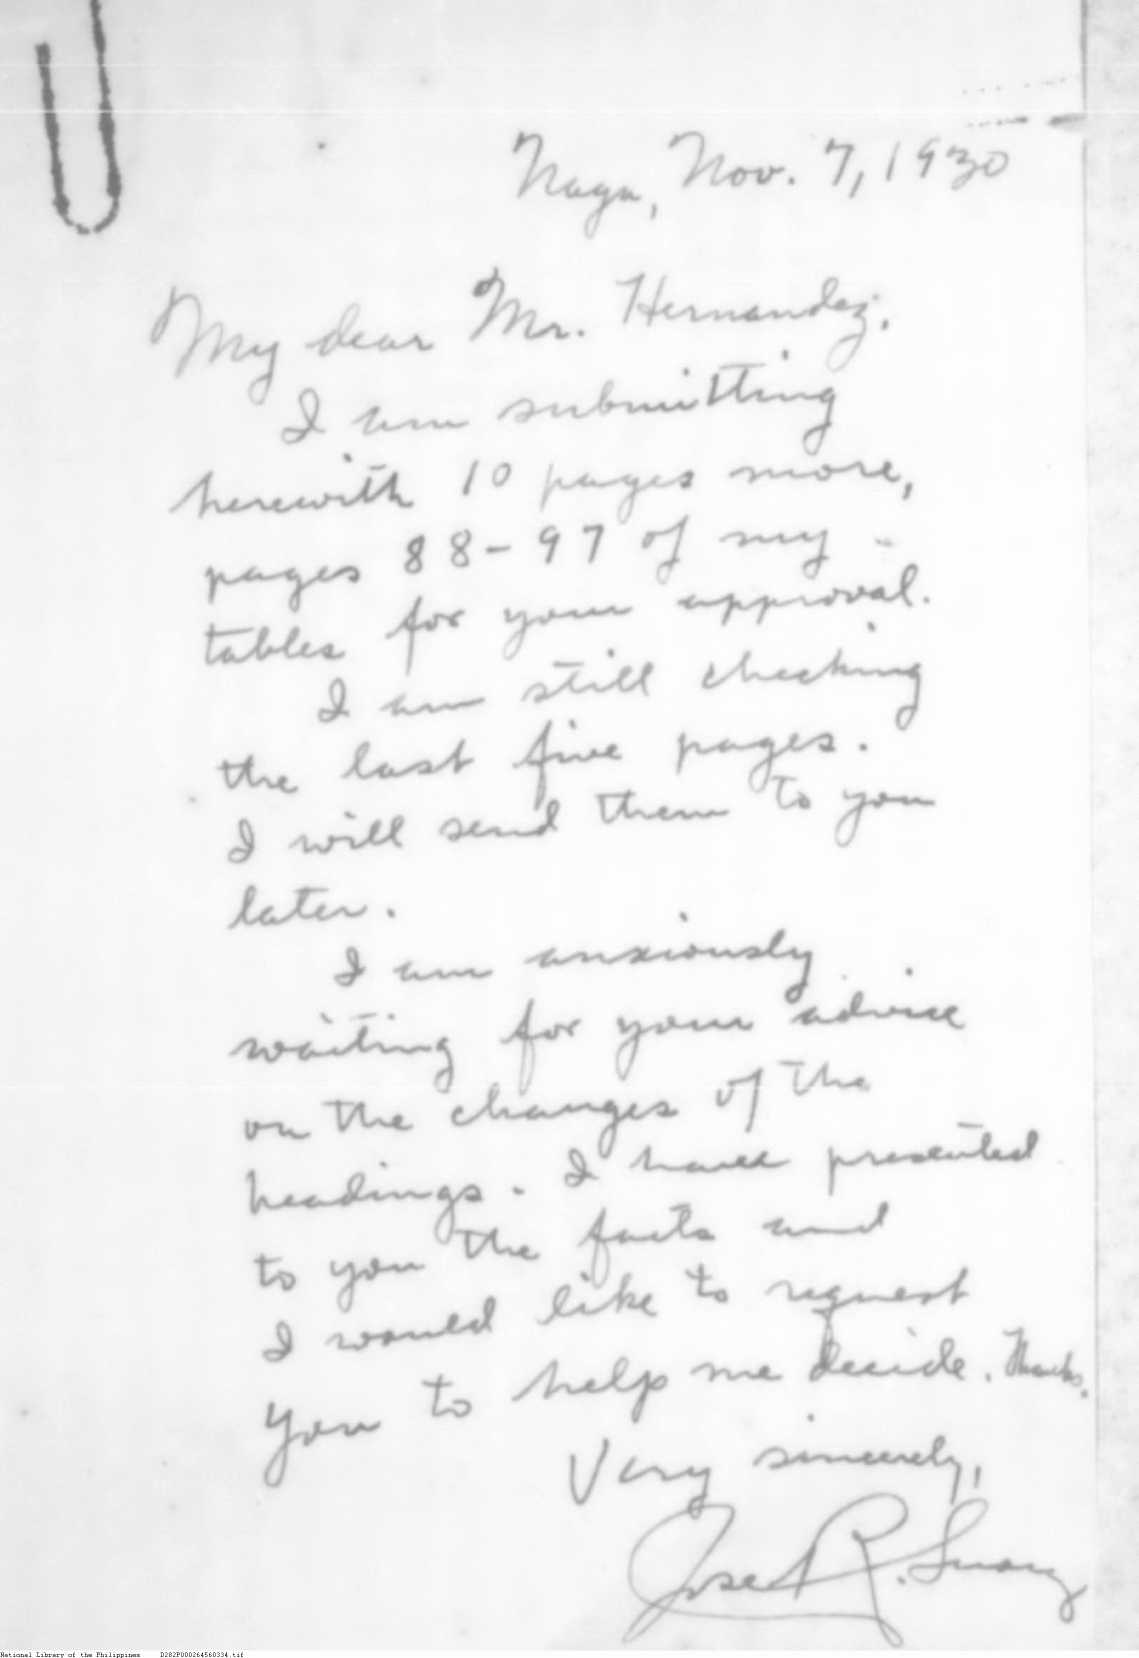 Naga, Nov. 7, 1930
My dear Mr. Hernandez,
I am submitting
herewith 10 pages more,
pages 88-97 of my
tables for your approval.
I am still checking
the last five pages.
I will send them to you
later.
I am anxiously
waiting for your advice
on the changes of the
headings. I have presented
to you the facts and
I would like to request
you to help me decide. Thanks.
Very sincerely,
Jose R.
National Library of the Philippines D282P000264560334.tif